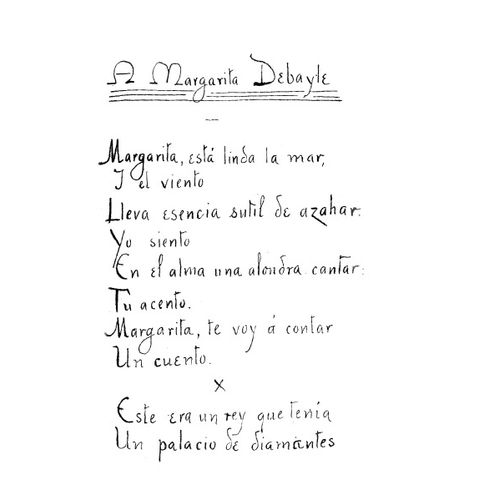 A Margarita Debayle
Margarita, está linda la mar,
I el viento
Lleva esencia sutil de azahar:
Yo siento
En el alma una alondra cantar:
Tu acento.
Margarita, te voy á contar
Un cuento.
x
Este era un rey que tenía
Un palacio de diamantes